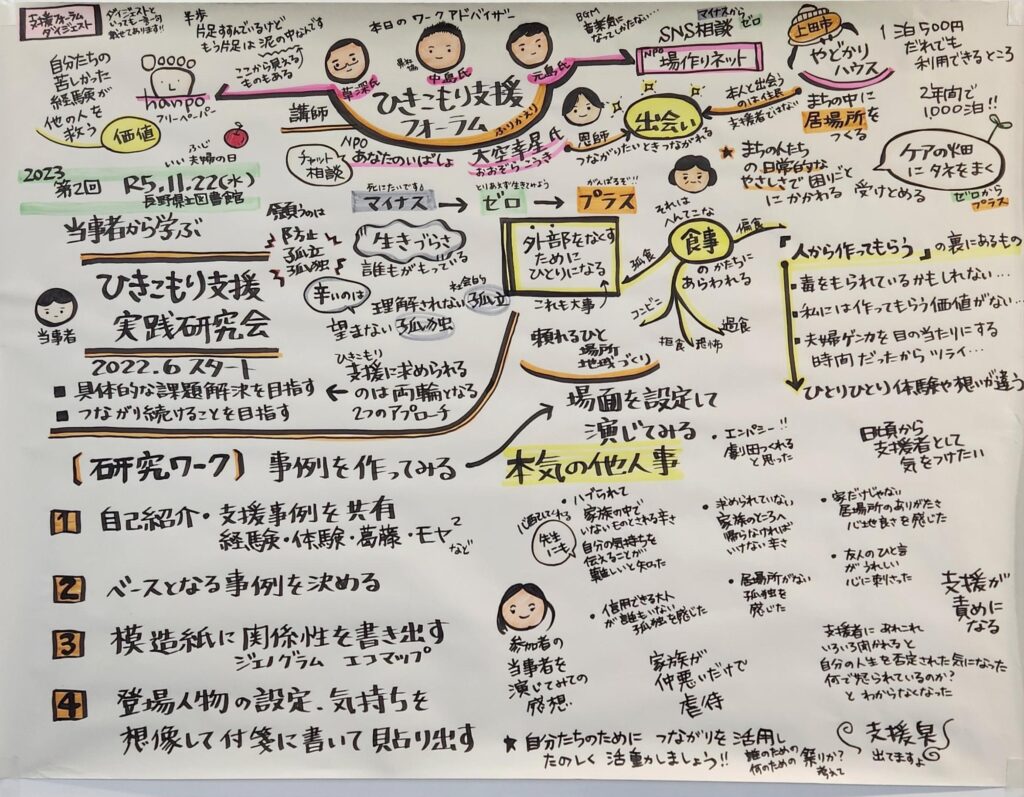 支援フォーラム
ダイジェスト
ダイジェストと
半歩
片足すすんでいるけど
もう片足は泥の中なんです
ここから見える
ものもある
本日のワークアドバイザー
草深氏
中島氏
元島氏
BGM
音楽気に
なってしからない…
マイナスから
ゼロ
SNS相談
NPO
場作りネット
上田市
やどかり
ハウス
1泊500円
だれでも
利用できるところ
2年間で
1000泊!!
自分たちの
苦しかった
経験が
他の人を
救う
価値
hanpo
フリーペーパー
ふじ
いい夫婦の日
講師
ひきこもり支援
フォーラム
ふりかえり
チャット
相談
NPO
あなたのいばしょ
大空幸星氏
おおぞらこうき
恩師
出会い
つながりたいときつながれる
本人と出会う
のは住民
支援者ではない
まちの中に
居場所を
つくる
★まちの人たち
の日常的な
やさしさで困りごと
にかかわる 受けとめる
ケアの畑
にタネをまく
ゼロから
プラス
2023
第2回 R5.11.22(水)
長野県立図書館
当事者から学ぶ
ひきこもり支援
実践研究会
当事者
2022.6スタート
■具体的な課題解決を目指す
■つながり続けることを目指す
ひきこもり
支援に求められる
のは両輪となる
2つのアプローチ
願うのは
防止
孤立
孤独
死にたいです
マイナス
とりあえず生きてみよう
ゼロ
がんばるぞ!!
プラス
生きづらさ
誰もがもっている
辛いのは
社会から
理解されない孤立
望まない孤独
外部をなくす
ために
ひとりになる
これも大事
頼れるひと
場所
地域づくり
それは
へんてこな
食事
のかたちに
あらわれる
偏食
孤食
コンビニ
拒食・恐怖
過食
『人から作ってもらう』の裏にあるもの
・毒をもられているかもしれない…
・私には作ってもらう価値がない…
・夫婦ゲンカを目の当たりにする
時間だったからツライ…
ひとりひとり体験や想いが違う
[研究ワーク] 事例を作ってみる
1 自己紹介・支援事例を共有
経験・体験・葛藤・モヤ2
など
2 ベースとなる事例を決める
3 模造紙に関係性を書き出す
ジェノグラム エコマップ
4 登場人物の設定、気持ちを
想像して付箋に書いて貼り出す
場面を設定して
演じてみる
本気の他人事
・エンパシー!!
劇団つくれる
と思った
日頃から
支援者として
気をつけたい
先生
にも
・ハブられて
家族の中で
いないものとされる辛さ
自分の気持ちを
伝えることが
難しいと知った
・信用できる大人
が誰もいない
孤独を感じた
・求められていない
家族のところへ
帰らなければ
いけない辛さ
・居場所がない
孤独を
感じた
・家だけじゃない
居場所のありがたさ
心地良さを感じた
・友人のひと言
がうれしい
心に刺さった
支援が
責めに
なる
参加者の
当事者を
演じてみての
感想…
家族が
仲悪いだけで
虐待
支援者にあれこれ
いろいろ聞かれると
自分の人生を否定された気になった
何で怒られているのか?
とわからなくなった
★自分たちのために つながりを活用し
たのしく活動かしましょう!!
誰のための
何のための 祭りか?
考えて
支援臭
出てますよ